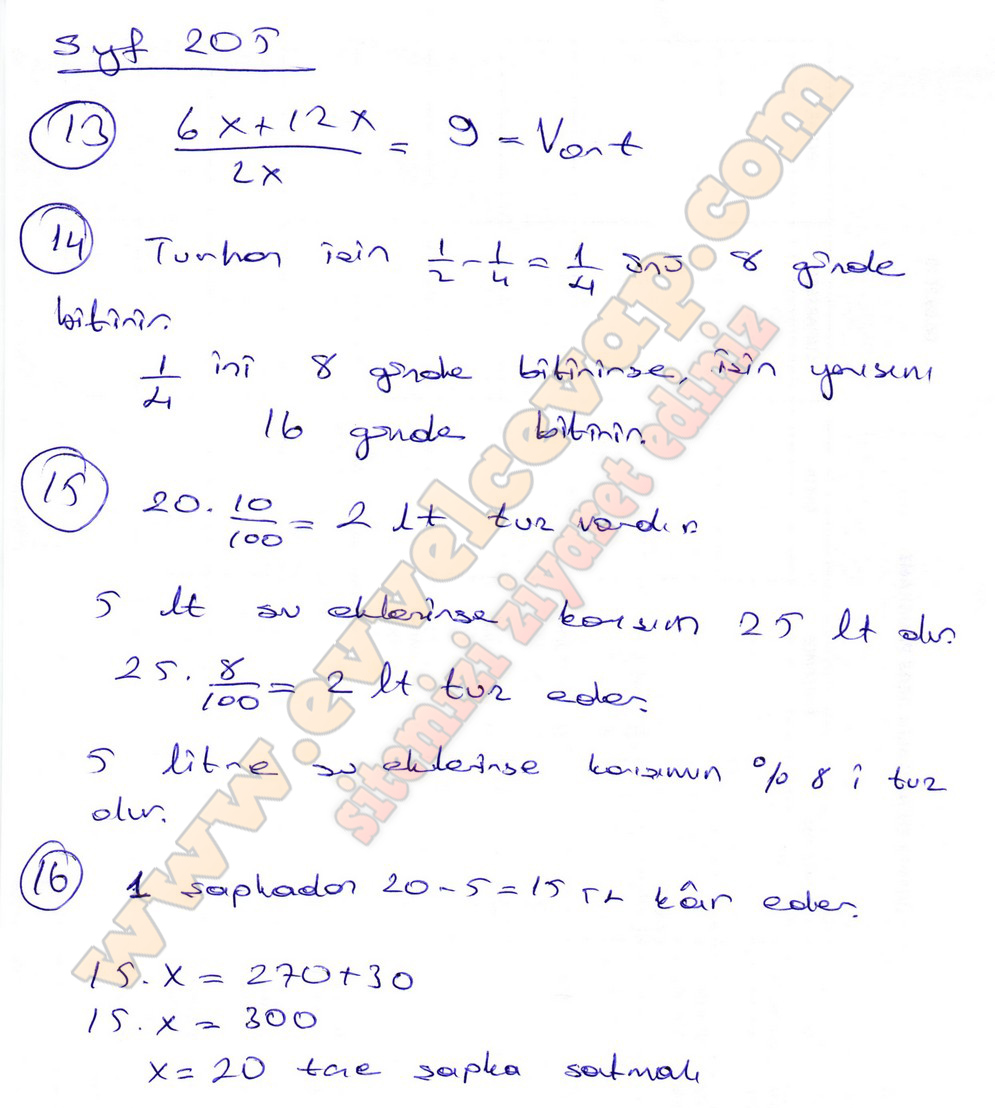 Syf 205
13 (6x+12x)/2x = 9 = Vort
14 Turhan işin 1/2 - 1/4 = 1/4 ünü 8 günde
bitirir.
1/4 ini 8 günde bitirirse, işin yarısını
16 günde bitirir.
15 20 . 10/100 = 2 lt tuz vardır
5 lt su eklenirse karışım 25 lt olur.
25 . 8/100 = 2 lt tuz eder.
5 litre su eklenirse karışımın % 8 i tuz
olur.
16 1 şapkadan 20 - 5 = 15 TL kâr eder.
15 . x = 270 + 30
15 . x = 300
x = 20 tane şapka satmalı
www.evvelcevap.com
sitemizi ziyaret ediniz